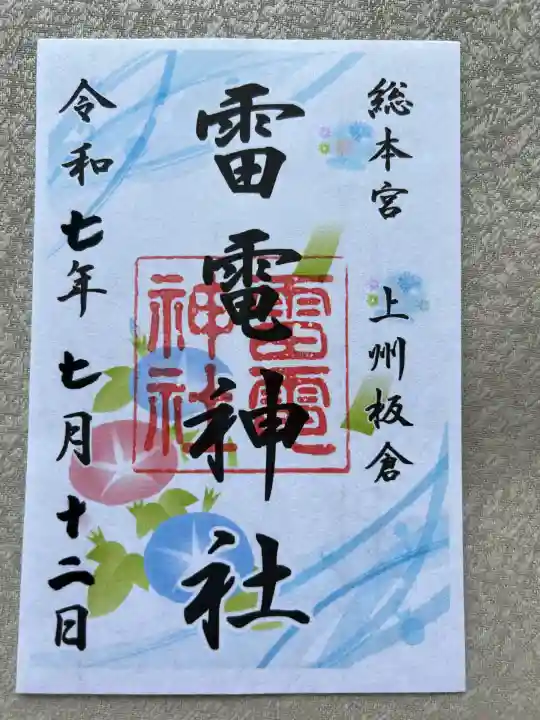 総本宮 上州板倉
雷電神社
雷電神社
令和七年七月十二日